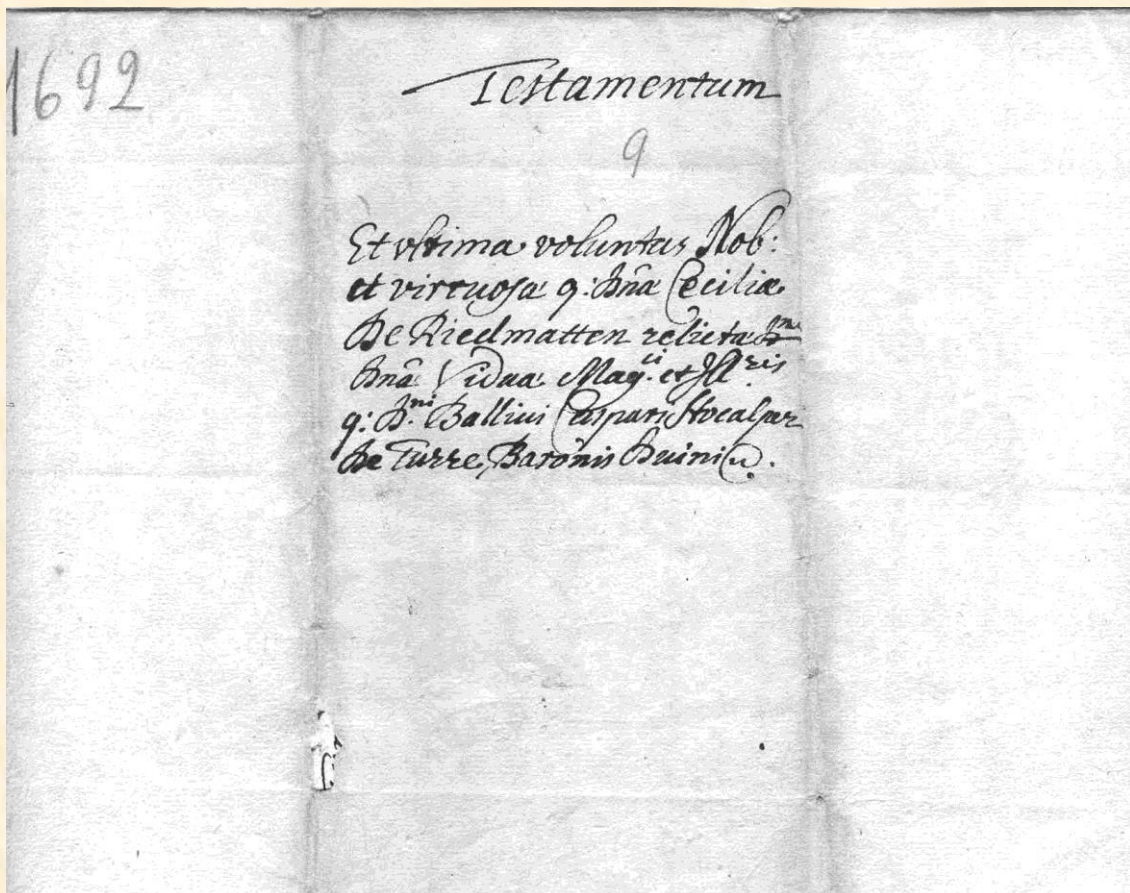 1692
Testamentum
9
Et vltima voluntas Nob:
et virtuosæ q: Dnã Ceciliæ
De Riedmatten relicta
Dnã Vidua Mag:ci et Ill:ris
q: D:ni Ballivi Caspari Stocalper
De Turre, Baronis Duini